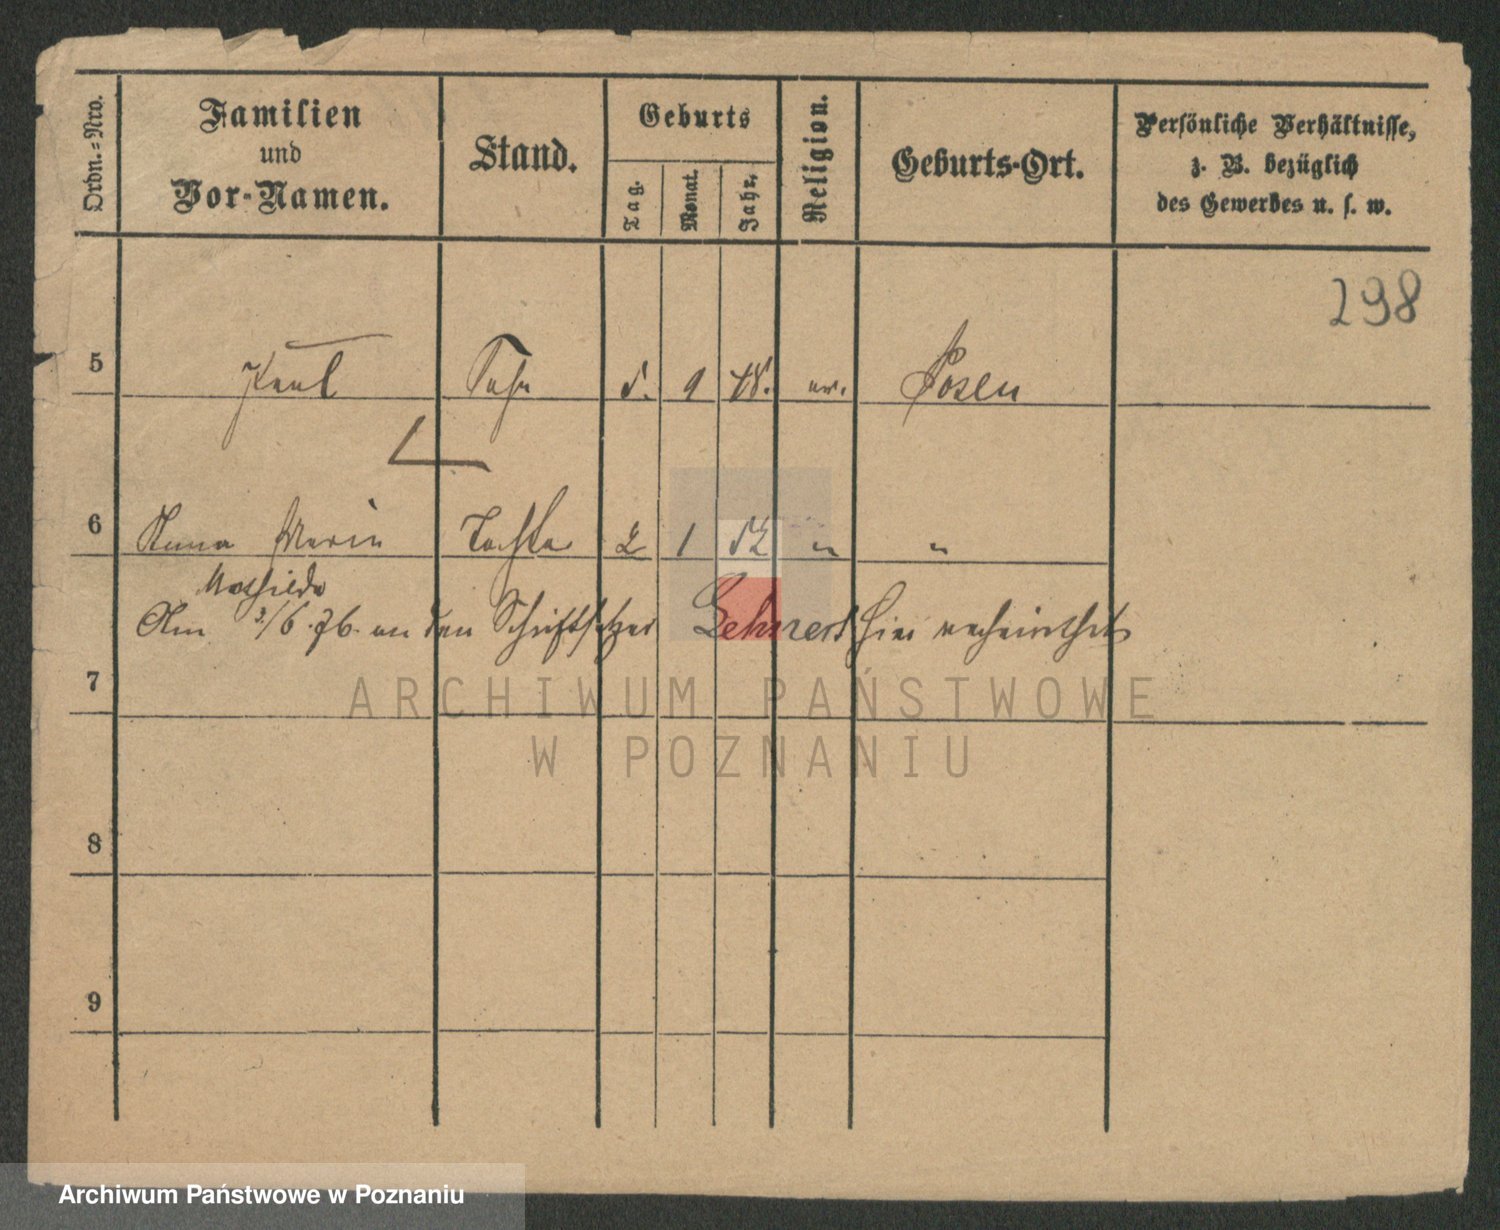 Ordn.-Nro.
Familien
und
Vor-Namen.
Stand.
Geburts
Tag.
Monat.
Jahr.
Religion.
Geburts-Ort.
Persönliche Verhältnisse,
z. B. bezüglich
des Gewerbes u. s. w.
298
5 Paul Sohn 5. 9 48. ev. Posen
6 Anna Marie Tochter 2 1 52 " "
Mathilde
Am 3/6.76. an den Schriftsetzer Lehnert hier verheirathet
7
ARCHIWUM PAŃSTWOWE
W POZNANIU
8
9
Archiwum Państwowe w Poznaniu